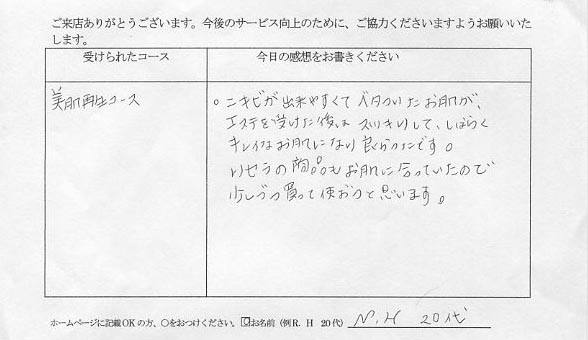 ご来店ありがとうございます。今後のサービス向上のために、ご協力くださいますようお願いいた
します。
受けられたコース
今日の感想をお書きください
美肌再生コース
。ニキビが出来やすくてベタついたお肌が、
エステを受けた後は スッキリして、しばらく
キレイなお肌になり 良かったです。
リセラの商品もお肌に合っていたので
少しづつ買って使おうと思います。
ホームページに記載OKの方、○をおつけください。 お名前(例R. H 20代) N.H 20代